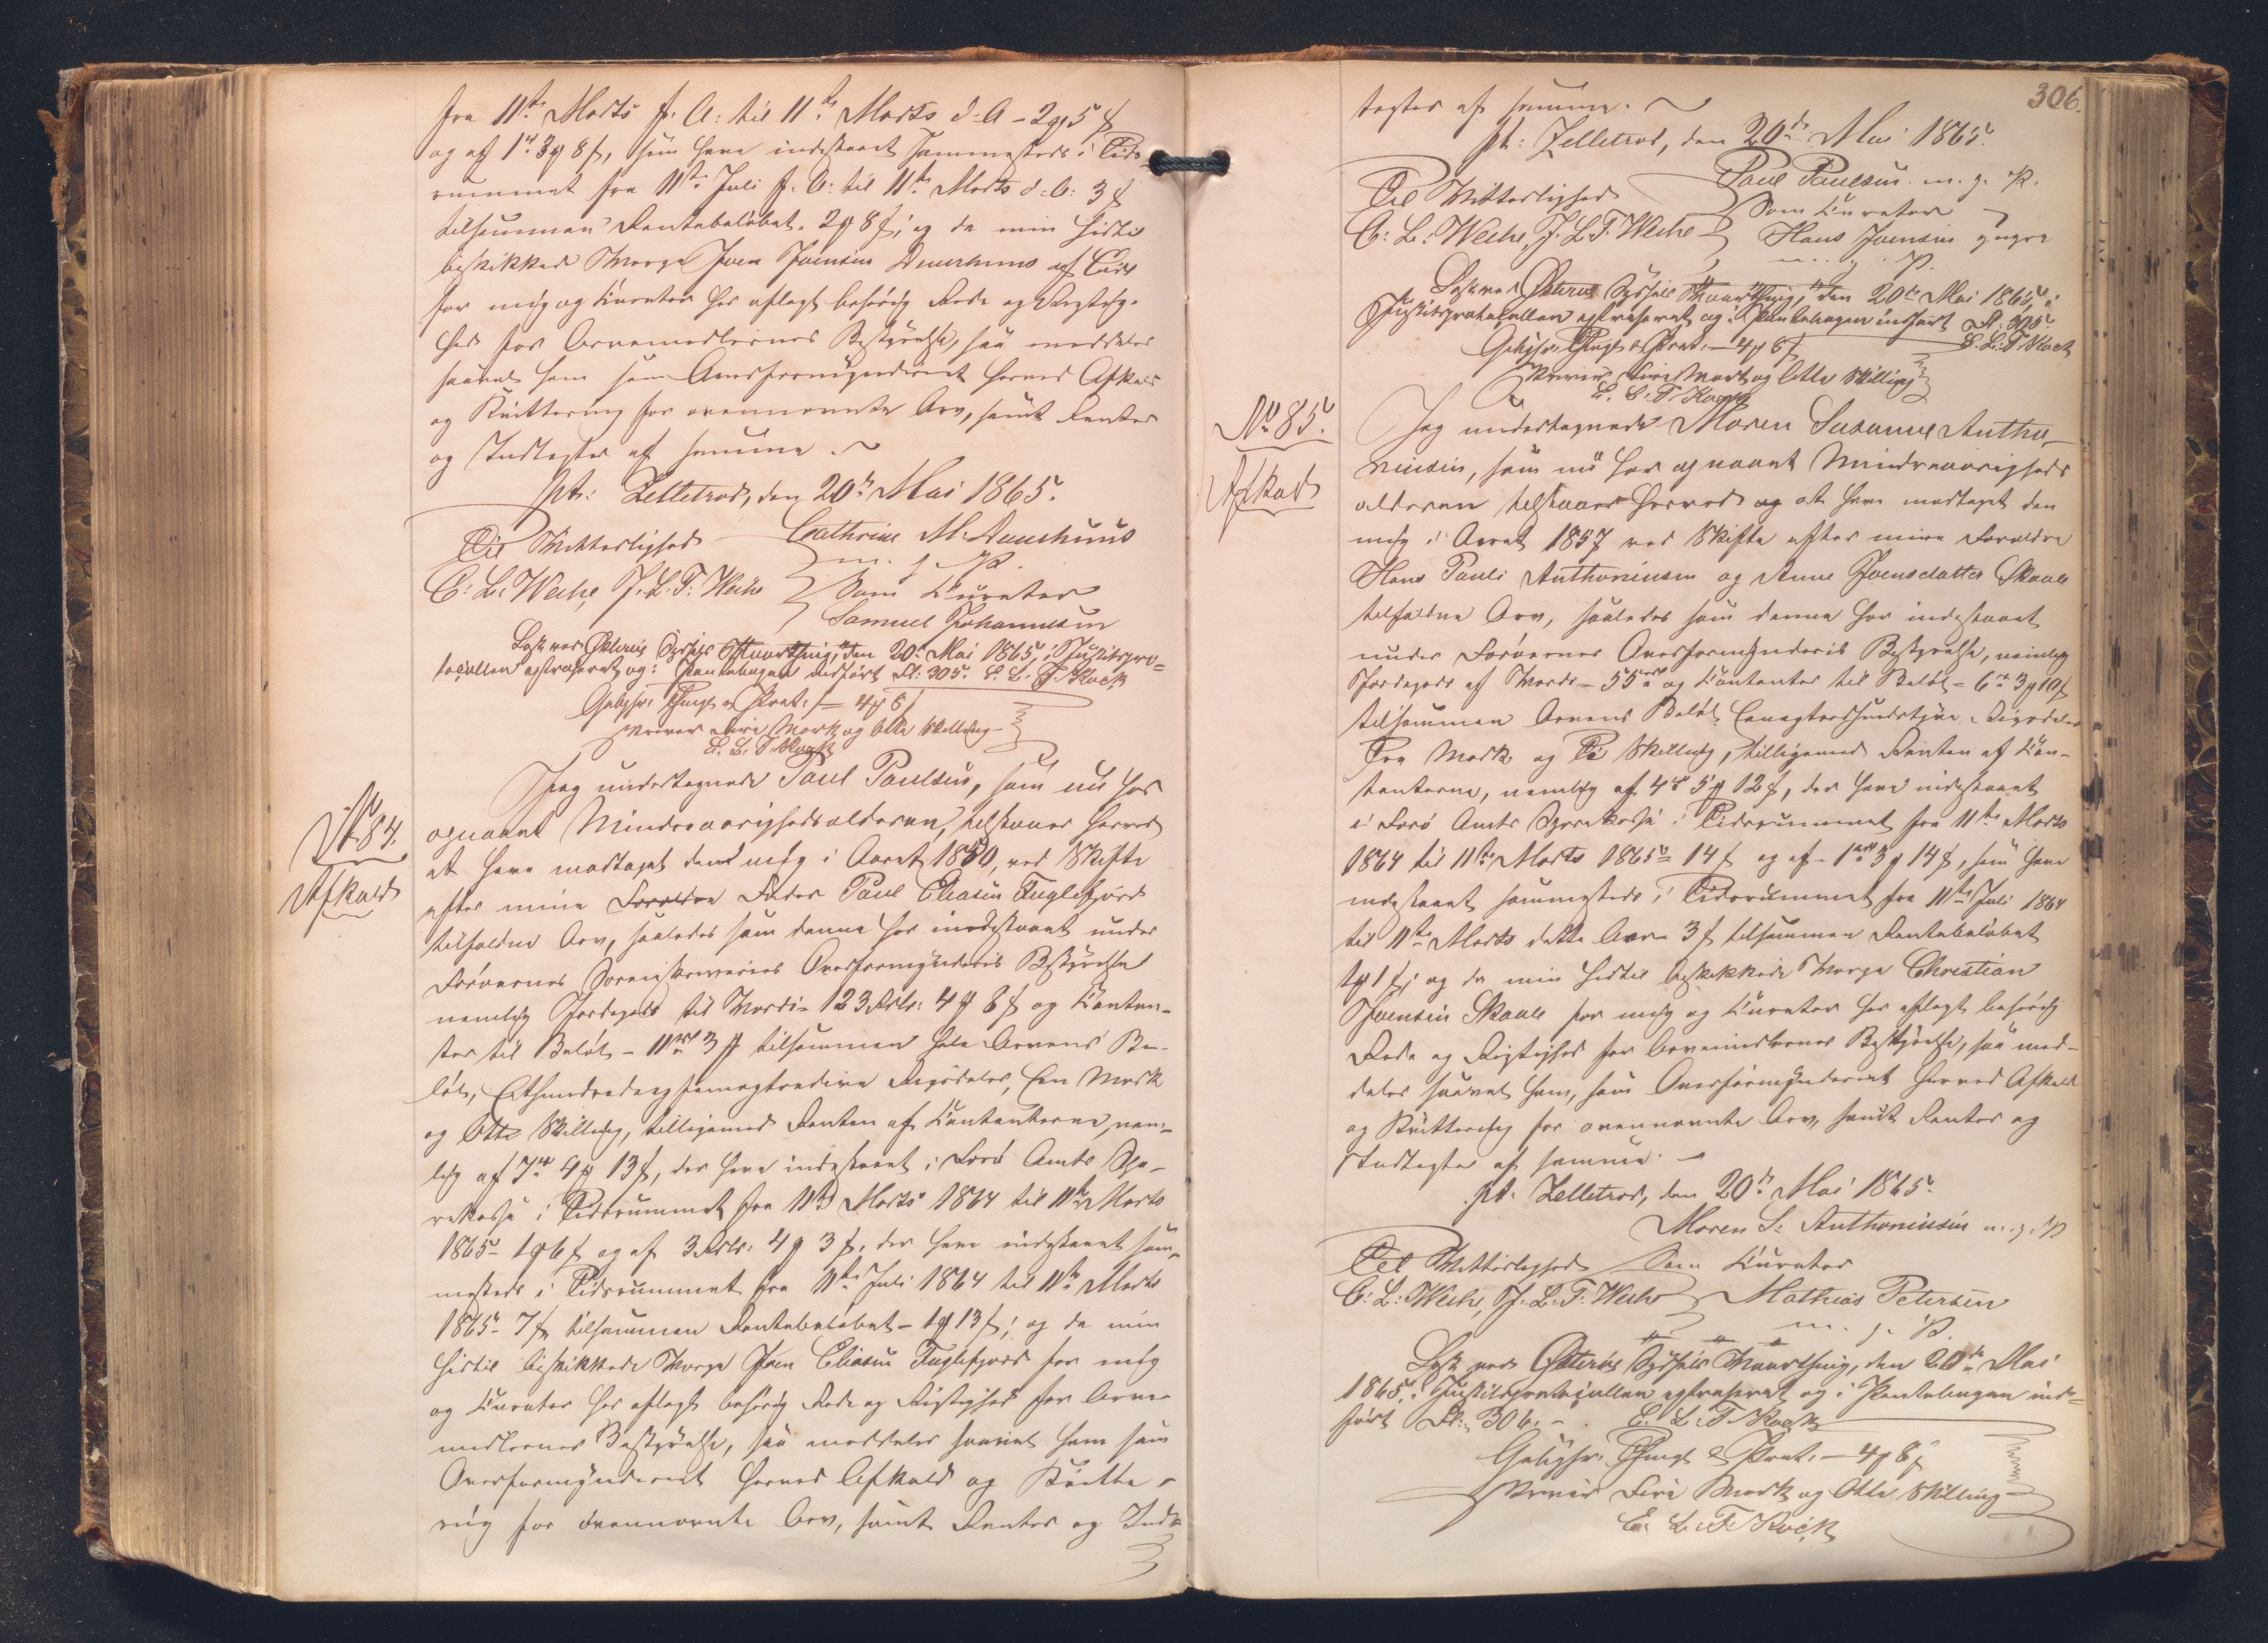 fra 11te Marts f. A: til 11te Marts d. A - 2 ψ 5 ß
og af 1rd 3 ψ 8 ß, som have indestaaet sammesteds i Tids-
rummet fra 11te Juli f. A: til 11te Marts d. A: 3 ß
tilsammen Rentebeløbet. 2 ψ 8 ß; og da min hidtil
beskikkede Værge Joen Joensen af
for mig og Curator har aflagt behørig Rede og Rigtig-
hed for Arvemidlernes Bestyrelse, saa meddeles
saavel ham som Overformynderiet herved Afkald
og Kvittering for ovennævnte Arv, samt Renter
og Indtægter af samme.
pt: Zelletrød, den 20de Mai 1865.
Til Vitterlighed Cathrine M.
m. f. P.
C: L: Weihe, J. L. F. Weihe Som Curator
Samuel Johannesen
Læst ved Østerøs Syssels Vaarthing, den 20de Mai 1865, i Justitspro-
tocollen extraheret og i Pantebogen indført Fl: 305. E. L. F. Kock
Gebyhr: Thingl & Prot: - 4 ψ 8 ß
skriver Fire Mark og Otte Skilling
E. L. F. Kock
No 84.
Afkald
Jeg undertegnede Paul Paulsen, som nu har
opnaaet Mindreaarighedsalderen, tilstaaer herved
at have modtaget den mig i Aaret 1850, ved Skifte
efter min Forældre Fader Paul Eliasen Fuglefjord
tilfaldne Arv, saaledes som denne har indestaaet under
Færøernes Sorenskriveries Overformynderies Bestyrelse
nemlig Jordegods til Værdi - 123 Rdlr: 4 ψ 8 ß og Contan-
ter til Beløb - 11rd 3 ψ tilsammen hele Arvens Be-
løb, Ethundredeogfemogtredive Rigsdaler, Een Mark
og Otte Skilling, tilligemed Renten af Contanterne, nem-
lig af 7rd 4 ψ 13 ß, der have indestaaet i Færø Amts Spa-
rekasse i Tidsrummet fra 11te Marts 1864 til 11te Marts
1865 - 1 ψ 6 ß og af 3 Rdlr: 4 ψ 3 ß, der have indestaaet sam-
mesteds i Tidsrummet fra 11te Juli 1864 til 11te Marts
1865 - 7 ß, tilsammen Rentebeløbet - 1 ψ 13 ß; og da min
hidtil beskikkede Værge Joen Eliasen Fuglefjord for mig
og Curator har aflagt behørig Rede og Rigtighed for Arve-
midlernes Bestyrelse, saa meddeles saavel ham som
Overformynderiet herved Afkald og Kvitte-
ring for ovennævnte Arv, samt Renter og Ind-
306.
tægter af samme.
pt: Zelletrød, den 20de Mai 1865.
Til Vitterlighed Paul Paulsen. m. f. P.
Som Curator
C: L: Weihe, J. L. F. Weihe Hans Joensen yngre
m. f. P.
Læst ved Østerøs Syssels Vaarthing, den 20de Mai 1865, i
Justitsprotocollen extraheret og i Pantebogen indført Fl: 305.
Gebyhr: Thingl & Prot: - 4 ψ 8 ß E. L. F. Kock
skriver Fire Mark og Otte Skilling
E. L. F. Kock
No 85.
Afkald
Jeg undertegnede Maren Susanne Antho-
niusen, som nu har opnaaet Mindreaarigheds
alderen tilstaaer herved og at have modtaget den
mig i Aaret 1857 ved Skifte efter mine Forældre
Hans Pauli Anthoniusen og Anne Joensdatter Skaale
tilfaldne Arv, saaledes som denne har indestaaet
under Færøernes Overformynderis Bestyrelse, nemlig
Jordegods af Værdi - 55rd og Contanter til Beløb - 6rd 3 ψ 10 ß
tilsammen Arvens Beløb Rigsdaler
Tre Mark og Ti Skilling, tilligemed Renten af Con-
tanterne, nemlig af 4rd 5 ψ 12 ß, der have indestaaet
i Færø Amts Sparekasse i Tidsrummet fra 11te Marts
1864 til 11te Marts 1865 - 14 ß og af - 1rd 3 ψ 14 ß, som have
indestaaet sammesteds i Tidsrummet fra 11te Juli 1864
til 11te Marts dette Aar - 3 ß tilsammen Rentebeløbet
1 ψ 1 ß; og da min hidtil beskikkede Værge Christian
Joensen Skaale for mig og Curator har aflagt behørig
Rede og Rigtighed for Arvemidlernes Bestyrelse, saa med-
deles saavel ham, som Overformynderiet herved Afkald
og Kvittering for ovennævnte Arv, samt Renter og
Indtægter af samme. -
pt. Zelletrød, den 20de Mai 1865.
Maren S: Anthoniusen m. f. P
Til Vitterlighed Som Curator
C: L: Weihe, J. L. F. Weihe Mathias Petersen
m. f. P.
Læst ved Østerøs Syssels Vaarthing, den 20de Mai
1865, i Justitsprotocollen extraheret og i Pantebogen ind-
ført Fl: 306. - E. L. F. Kock
Gebyhr: Thingl & Prot. - 4 ψ 8 ß
skriver Fire Mark og Otte Skilling
E. L. F. Kock